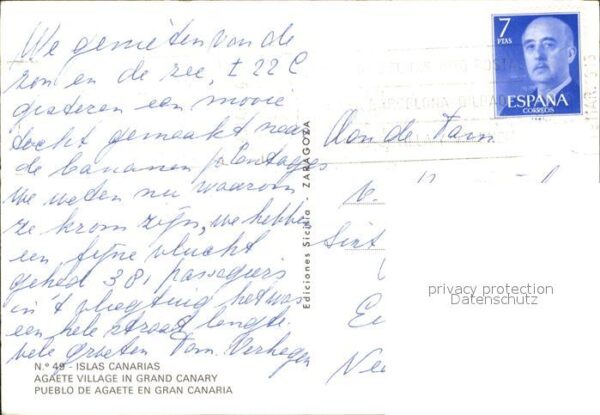 We genieten van de
zon en de zee, ± 22 C
gisteren een mooie
tocht gemaakt naar
de bananen plantages
we weten nu waarom
ze krom zijn, we hebben
een fijne vlucht
gehad 381 passagiers
in 't vliegtuig het was
een hele straat lengte.
vele groeten Fam. Verhegen
N.º 49 - ISLAS CANARIAS
AGAETE VILLAGE IN GRAND CANARY
PUEBLO DE AGAETE EN GRAN CANARIA
Ediciones Sicilia - ZARAGOZA
7
PTAS
ESPAÑA
CORREOS
BARCELONA-BILBAO
MAR.
Aan de Fam
Sint
privacy protection
Datenschutz